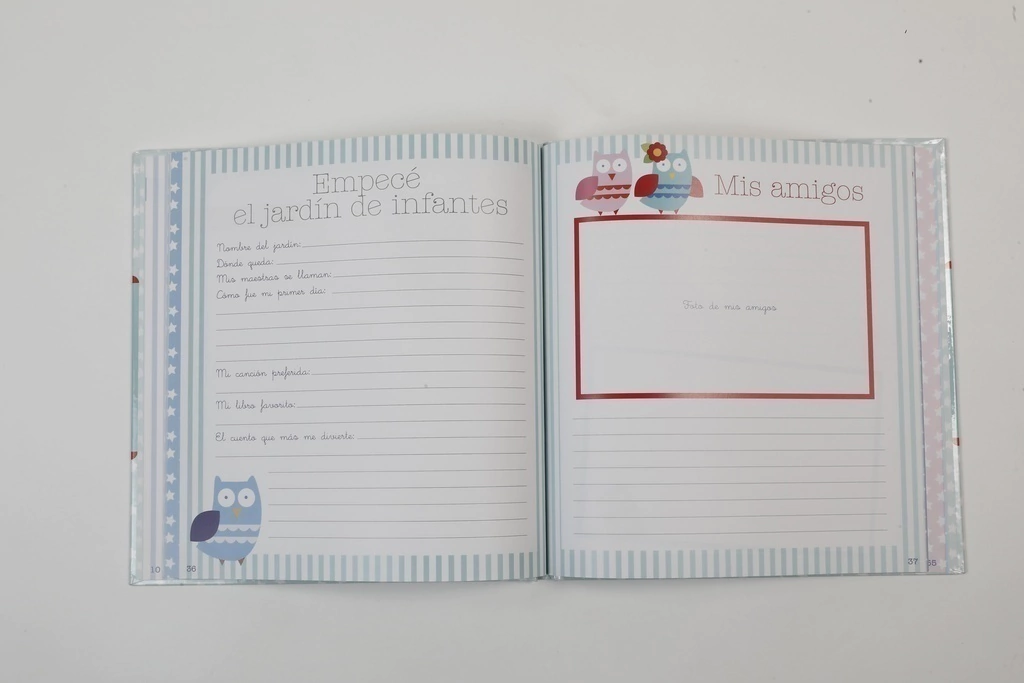 Empecé
el jardín de infantes
Nombre del jardín:
Dónde queda:
Mis maestras se llaman:
Cómo fue mi primer día:
Mi canción preferida:
Mi libro favorito:
El cuento que más me divierte:
10 36
Mis amigos
Foto de mis amigos
37